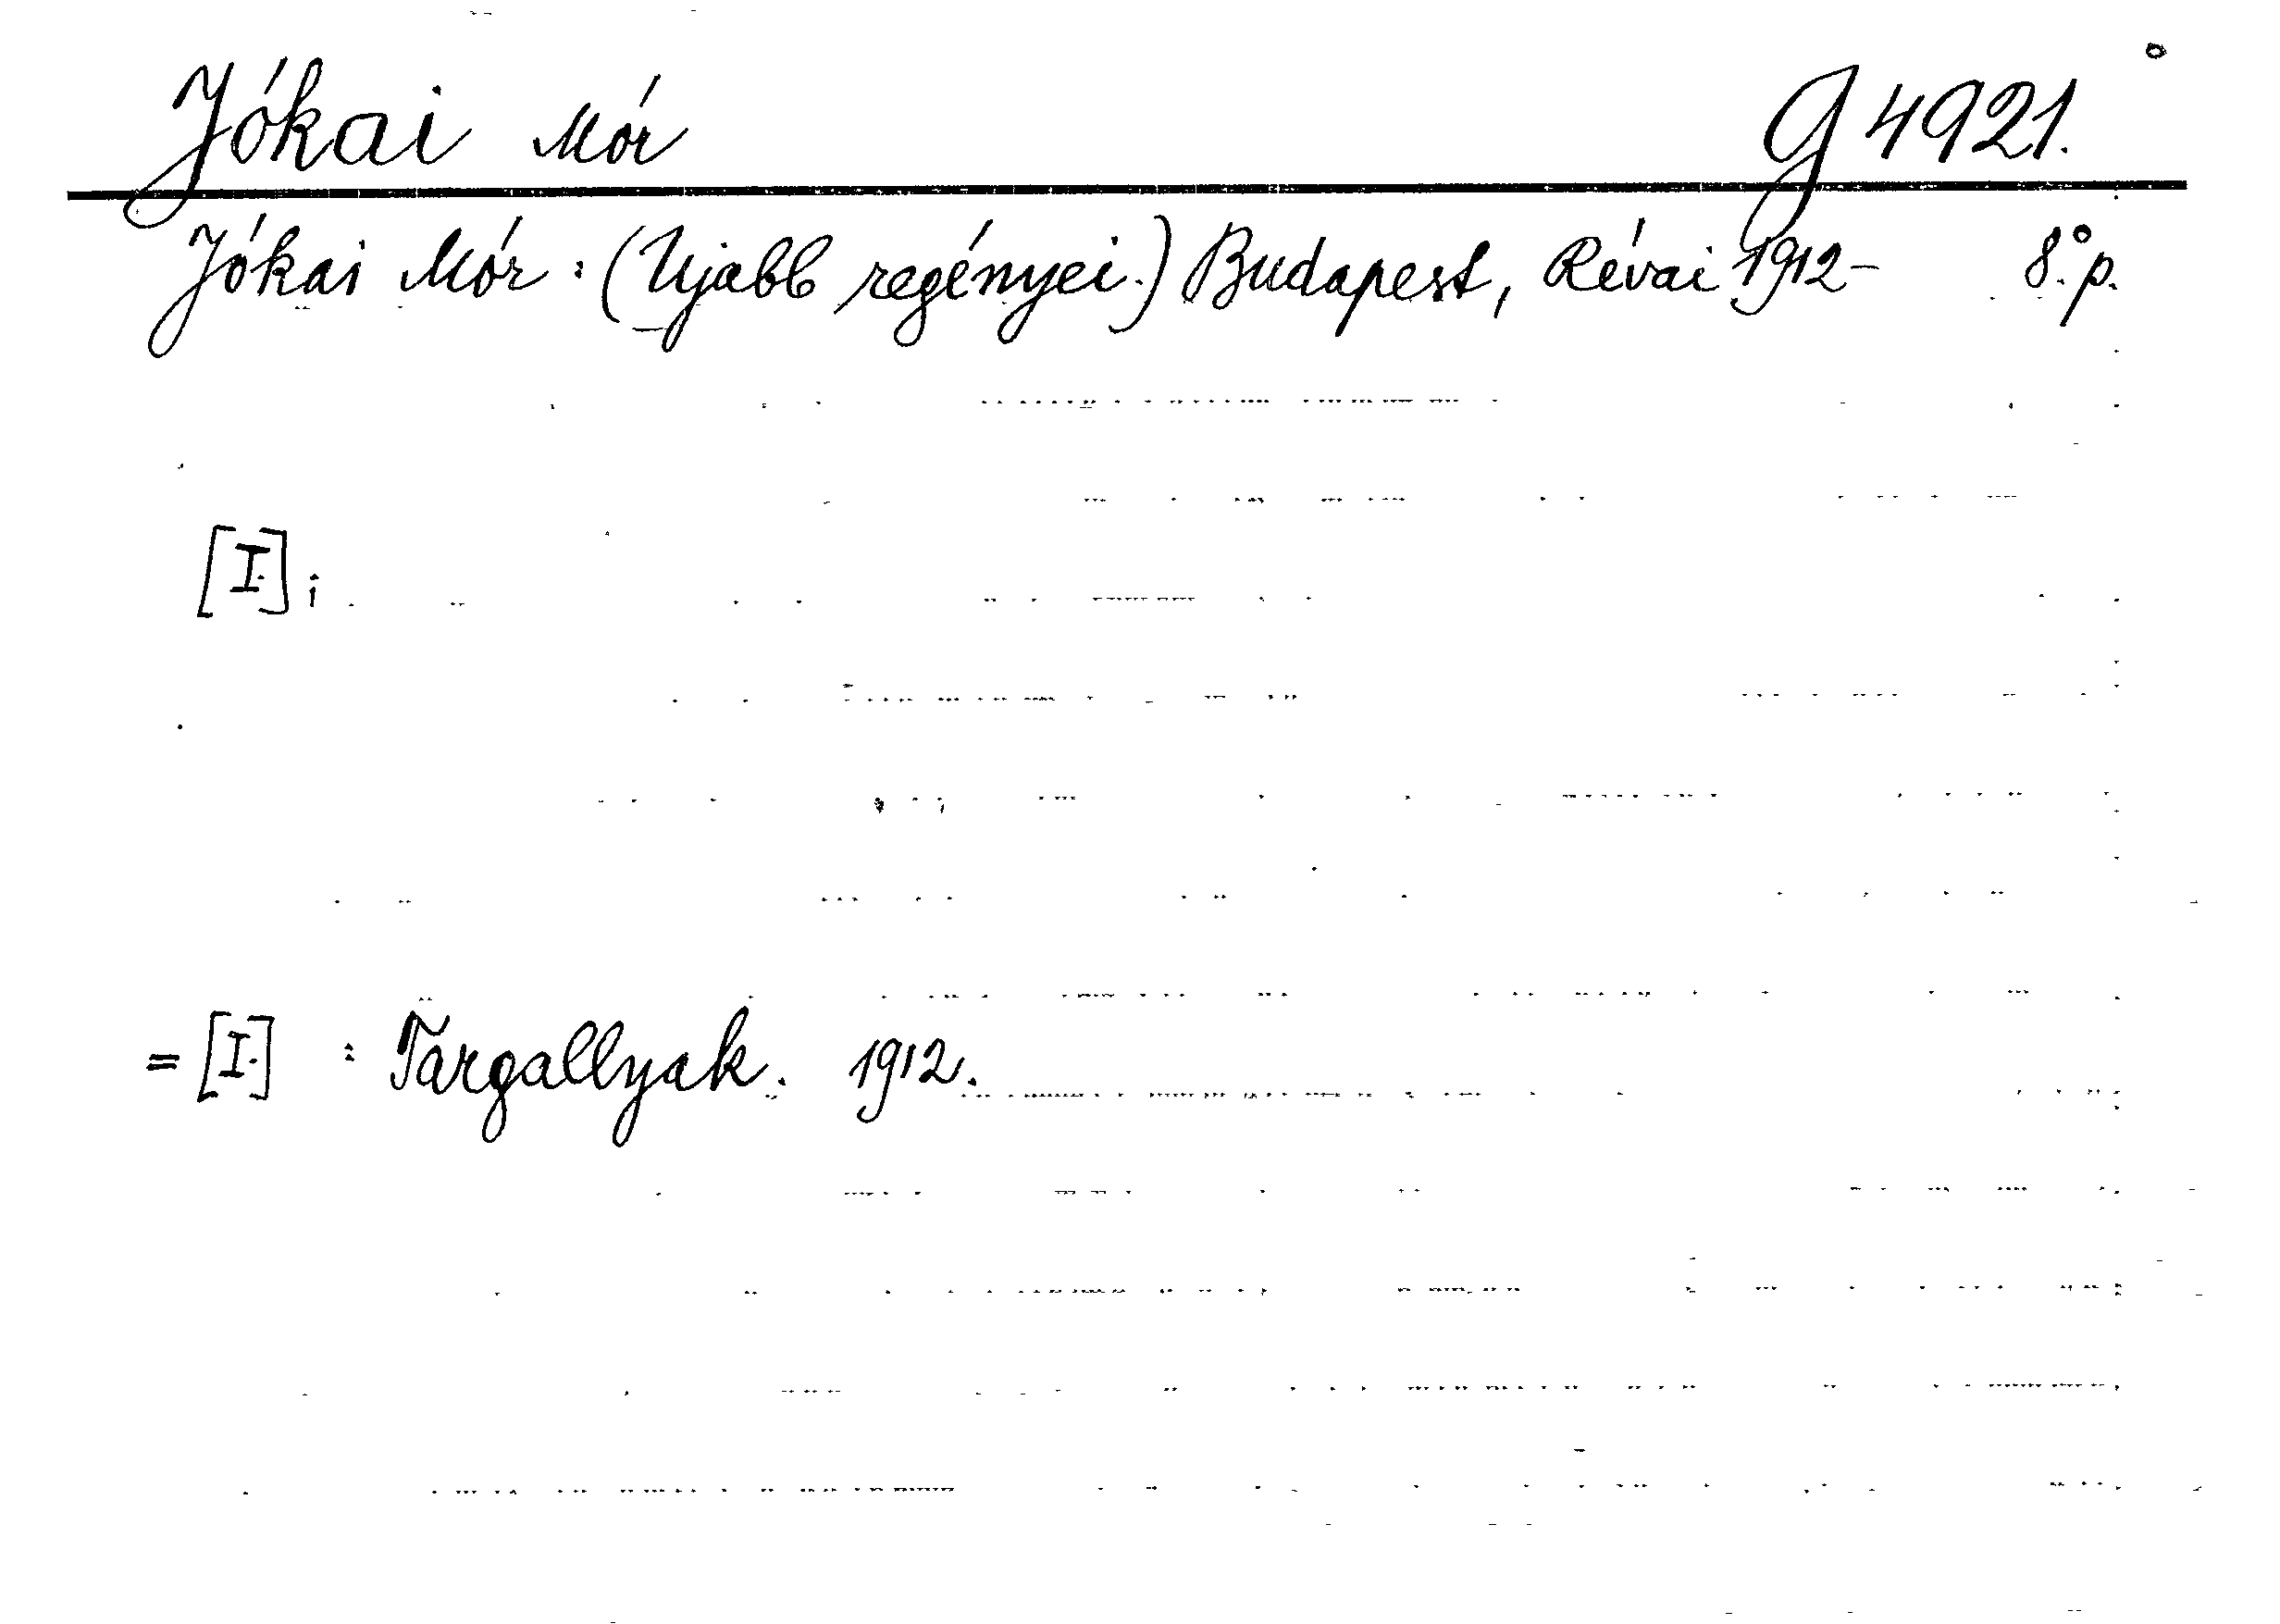 Jókai Mór G 4921.
Jókai Mór: (Ujabb regényei.) Budapest, Révai 1912- 8.° p.
[I.];
=[I.] : Targallyak. 1912.